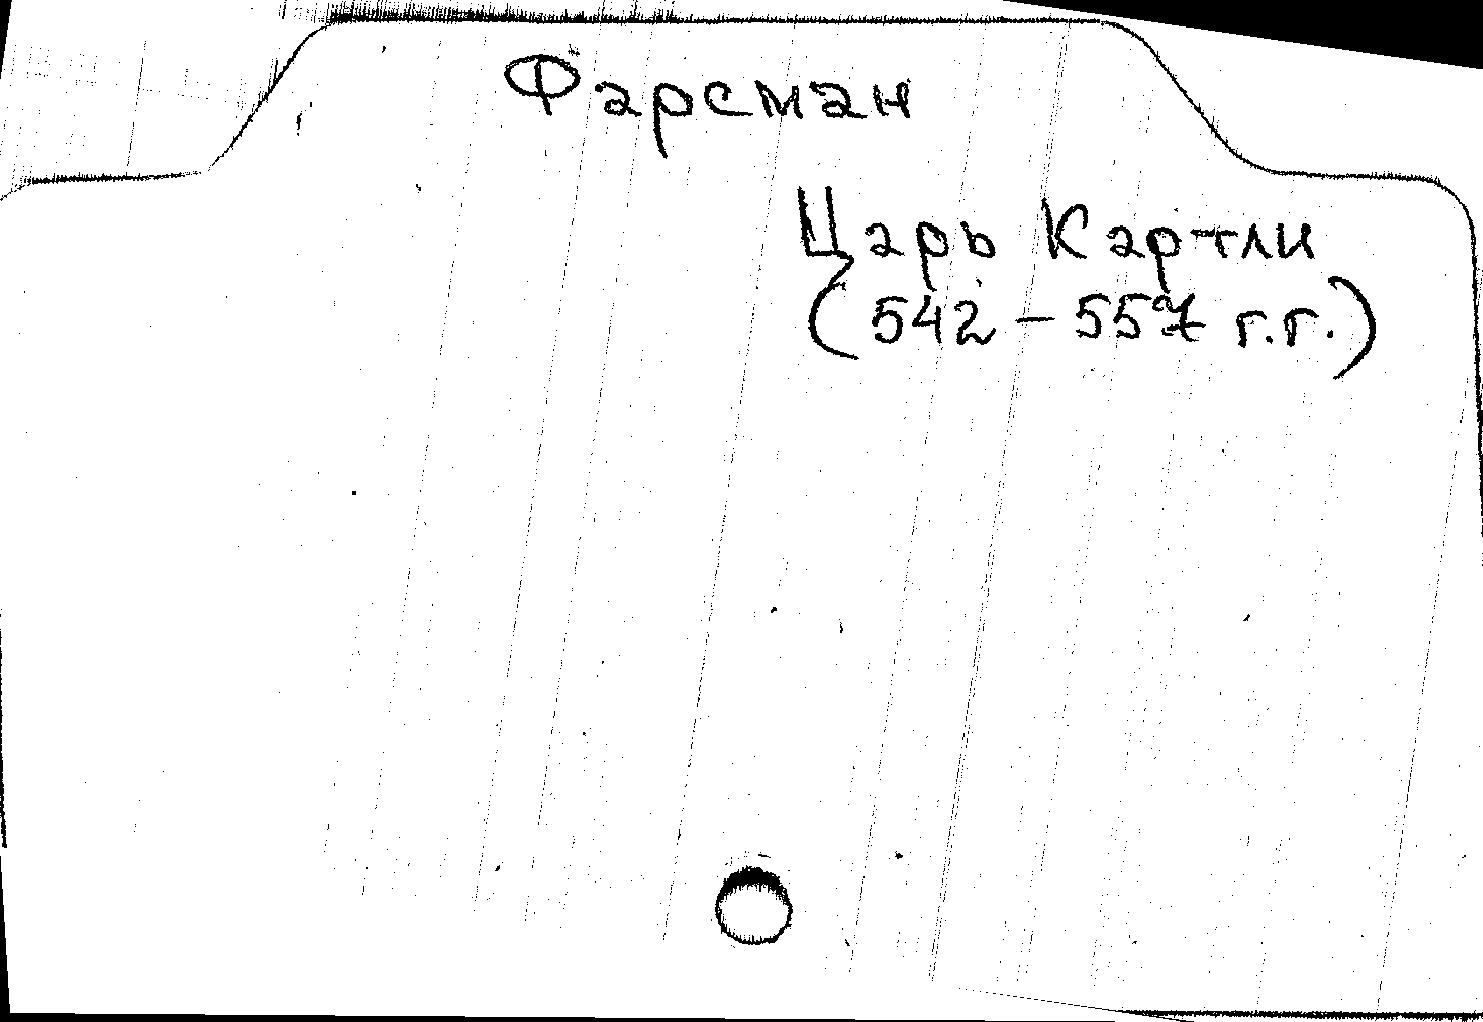 Фарсман
Царь Картли
(542 – 557 г.г.)